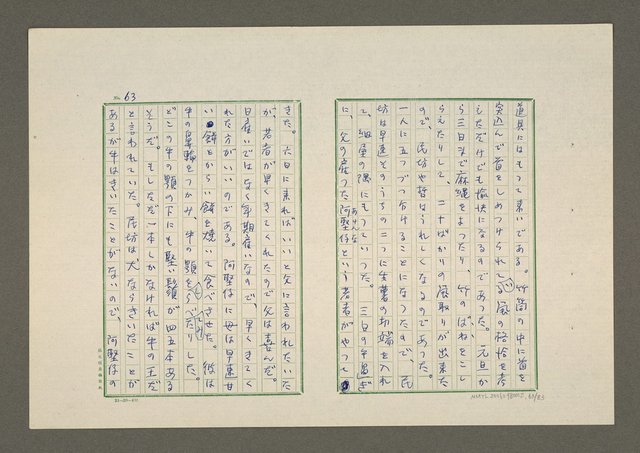 道具にはもって来いである。竹筒の中に首を
突込んで首をしめつけられた鼠の恰恰を考
えただけでも愉快になるのであった。元旦か
ら三日まで麻縄をよったり、竹のばねをこし
らえたりして、二十ばかりの鼠取りが出来た
ので、民坊や哲はうれしくなるのであった。
一人に五つづつ分けることになったので、民
坊は早速そのうちの二つに生薯の切端を入れ
て、細屋の隅にもっていった。三日の午過ぎ
に、父の雇った阿堅仔という若者がやって
きた。六日に来ればいいと父に言われたいた
が、若者が早くきてくれたので父は喜んだ。
日雇いではなく年期雇いなので、早くきてく
れた方がいいのである。阿堅仔に母は早速甘
い餅とからい餅を焼いて食べさせた。彼は
牛の鼻輪をつかみ、牛の顎をしらべたりした。
どこの牛の顎の下にも堅い鬚が四五本ある
そうだ。もしただ一本しかなければ牛の王だ
と言われていた。民坊は犬ならきいたことが
あるが牛はきいたことがないので、阿堅仔の
No. 63